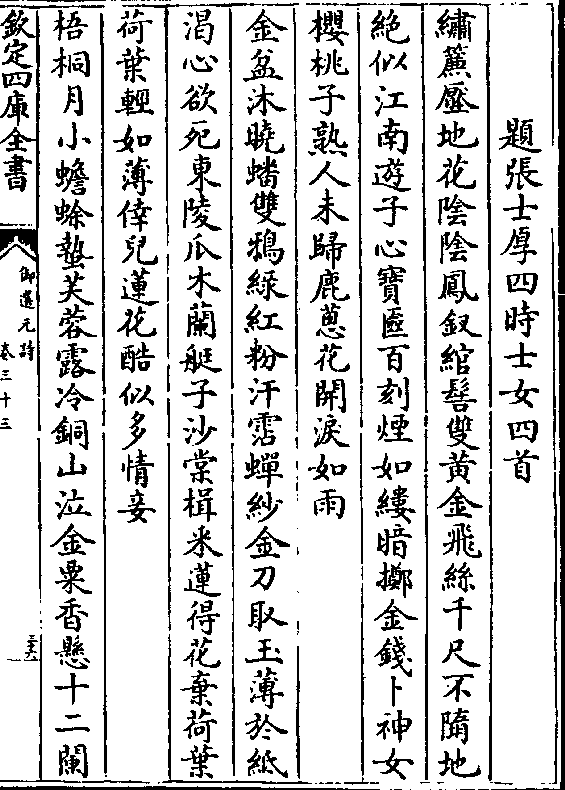 題張士厚四時士女四首
繡簾壓地花陰陰鳳釵綰髻雙黄金飛絲千尺不隨地
絶似江南遊子心寶匳百刻煙如縷暗擲金錢卜神女
櫻桃子熟人未歸鹿葱花開淚如雨
金盆沐曉蟠雙鵶緑紅粉汗霑蟬紗金刀取玉薄於紙
渇心欲死東陵瓜木蘭艇子沙棠楫采蓮得花棄荷葉
荷葉輕如薄倖兒蓮花酷似多情妾
梧桐月小蟾蜍蟄芙蓉露冷銅山泣金粟香懸十二闌
欽定四庫全書
御選元詩
卷三十三
三六